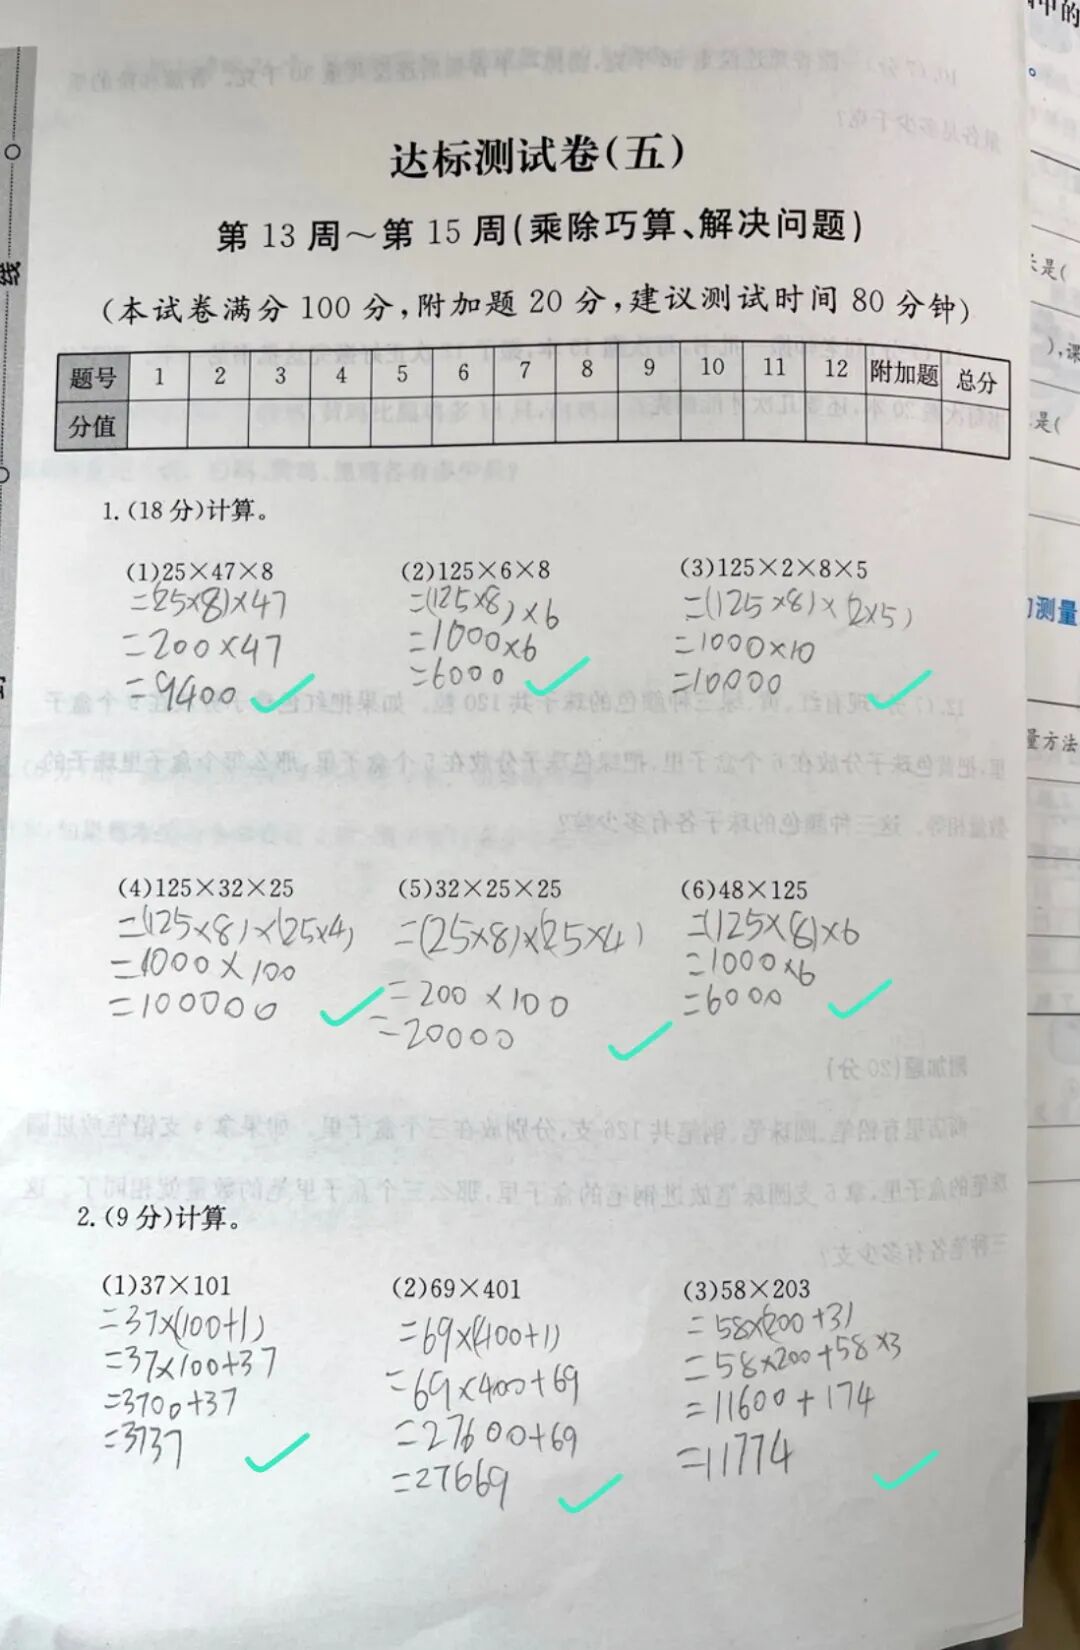 达标测试卷(五)
第13周～第15周(乘除巧算、解决问题)
(本试卷满分100分,附加题20分,建议测试时间80分钟)
题号 1 2 3 4 5 6 7 8 9 10 11 12 附加题 总分
分值
1.(18分)计算。
(1)25×47×8
=(25×8)×47
=200×47
=9400
(2)125×6×8
=(125×8)×6
=1000×6
=6000
(3)125×2×8×5
=(125×8)×(2×5)
=1000×10
=10000
(4)125×32×25
=(125×8)×(25×4)
=1000×100
=100000
(5)32×25×25
=(25×8)×(25×4)
=200×100
=20000
(6)48×125
=(125×8)×6
=1000×6
=6000
2.(9分)计算。
(1)37×101
=37×(100+1)
=37×100+37
=3700+37
=3737
(2)69×401
=69×(400+1)
=69×400+69
=27600+69
=27669
(3)58×203
=58×(200+3)
=58×200+58×3
=11600+174
=11774
线
甲的
长是(
),课
是(
测量
量方法